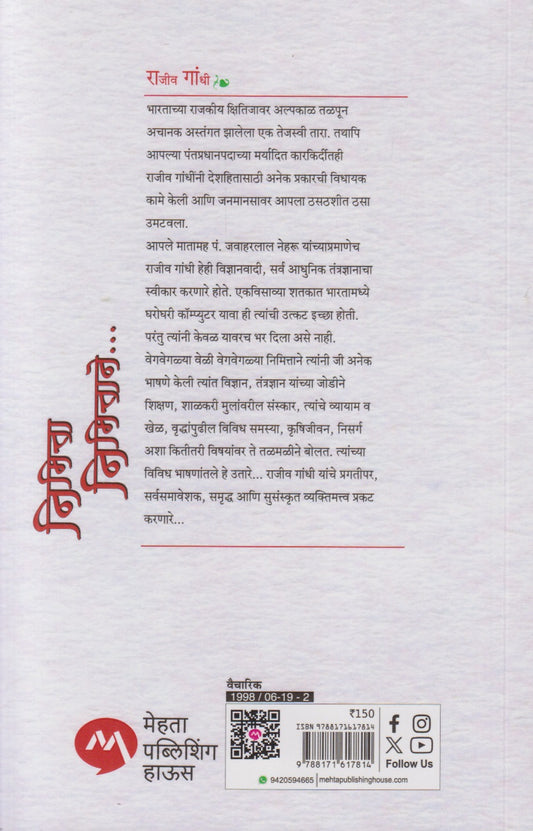 राजीव गांधी
भारताच्या राजकीय क्षितिजावर अल्पकाळ तळपून
अचानक अस्तंगत झालेला एक तेजस्वी तारा. तथापि
आपल्या पंतप्रधानपदाच्या मर्यादित कारकिर्दीतही
राजीव गांधींनी देशहितासाठी अनेक प्रकारची विधायक
कामे केली आणि जनमानसावर आपला ठसठशीत ठसा
उमटवला.
आपले मातामह पं. जवाहरलाल नेहरू यांच्याप्रमाणेच
राजीव गांधी हेही विज्ञानवादी, सर्व आधुनिक तंत्रज्ञानाचा
स्वीकार करणारे होते. एकविसाव्या शतकात भारतामध्ये
घरोघरी कॉम्प्युटर यावा ही त्यांची उत्कट इच्छा होती.
परंतु त्यांनी केवळ यावरच भर दिला असे नाही.
वेगवेगळ्या वेळी वेगवेगळ्या निमित्ताने त्यांनी जी अनेक
भाषणे केली त्यांत विज्ञान, तंत्रज्ञान यांच्या जोडीने
शिक्षण, शाळकरी मुलांवरील संस्कार, त्यांचे व्यायाम व
खेळ, वृद्धांपुढील विविध समस्या, कृषिजीवन, निसर्ग
अशा कितीतरी विषयांवर ते तळमळीने बोलत. त्यांच्या
विविध भाषणांतले हे उतारे... राजीव गांधी यांचे प्रगतीपर,
सर्वसमावेशक, समृद्ध आणि सुसंस्कृत व्यक्तिमत्त्व प्रकट
करणारे...
निमित्त
निमित्ताने...
मेहता
पब्लिशिंग
हाऊस
वैचारिक
1998 / 06-19 - 2
₹150
ISBN 9788171617814
9 788171 617814
9420594665 | mehtapublishinghouse.com
Follow Us